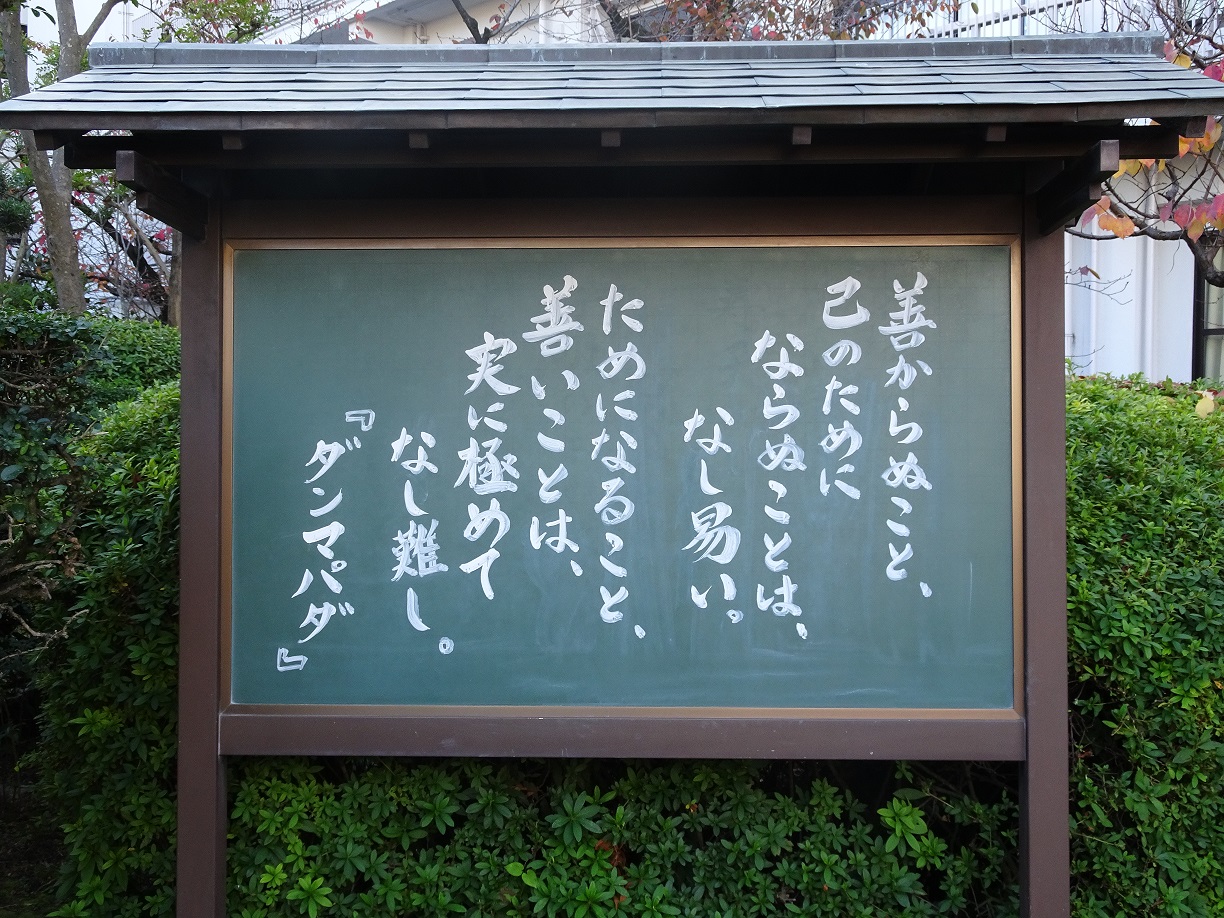 善からぬこと、
己のために
ならぬことは、
なし易い。
ためになること、
善いことは、
実に極めて
なし難し。
『ダンマパダ』